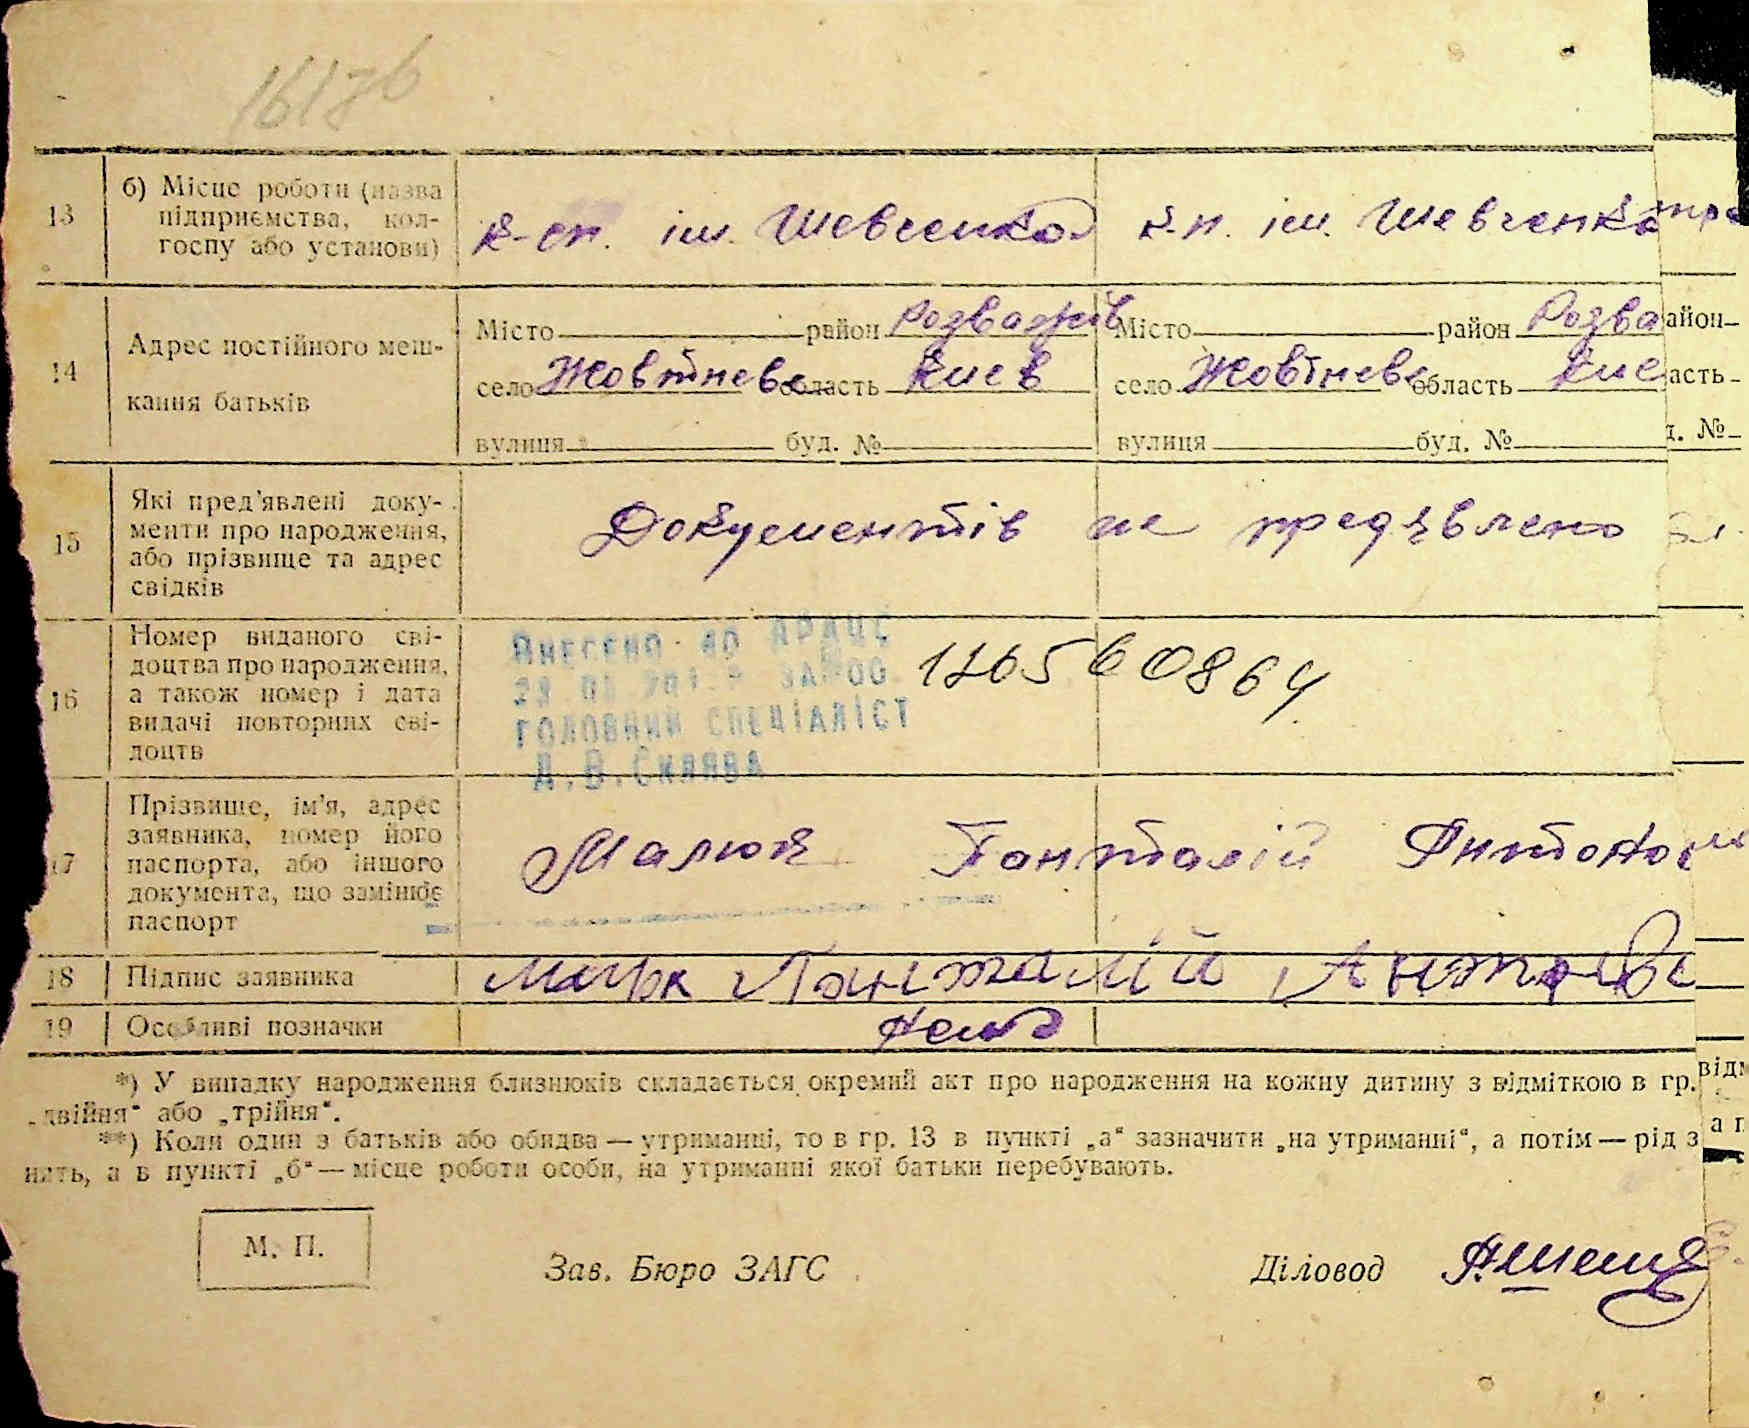 13 б) Місце роботи (назва підприємства, колгоспу або установи) к-сп. ім. Шевченко к.п. ім. Шевченко
14 Адрес постійного мешкання батьків
Місто район Розважів Місто район Розва айон
село Жовтневе область Киев село Жовтневе область Кие асть
вулиця буд. № вулиця буд. № д. №
15 Які пред'явлені документи про народження, або прізвище та адрес свідків
Документів не предявлено
16 Номер виданого свідоцтва про народження, а також номер і дата видачі повторних свідоцтв
ВНЕСЕНО ДО ДРАЦС
ГОЛОВНИЙ СПЕЦІАЛІСТ
17 Прізвище, ім'я, адрес заявника, номер його паспорта, або іншого документа, що замінює паспорт
Малюк Панталій Антонов
18 Підпис заявника Панталій
19 Особливі позначки
*) У випадку народження близнюків складається окремий акт про народження на кожну дитину з відміткою в гр.
„двійня“ або „трійня“.
**) Коли один з батьків або обидва — утриманні, то в гр. 13 в пункті „а“ зазначити „на утриманні“, а потім — рід з
нять, а в пункті „б“ — місце роботи особи, на утриманні якої батьки перебувають.
М. П.
Зав. Бюро ЗАГС Діловод